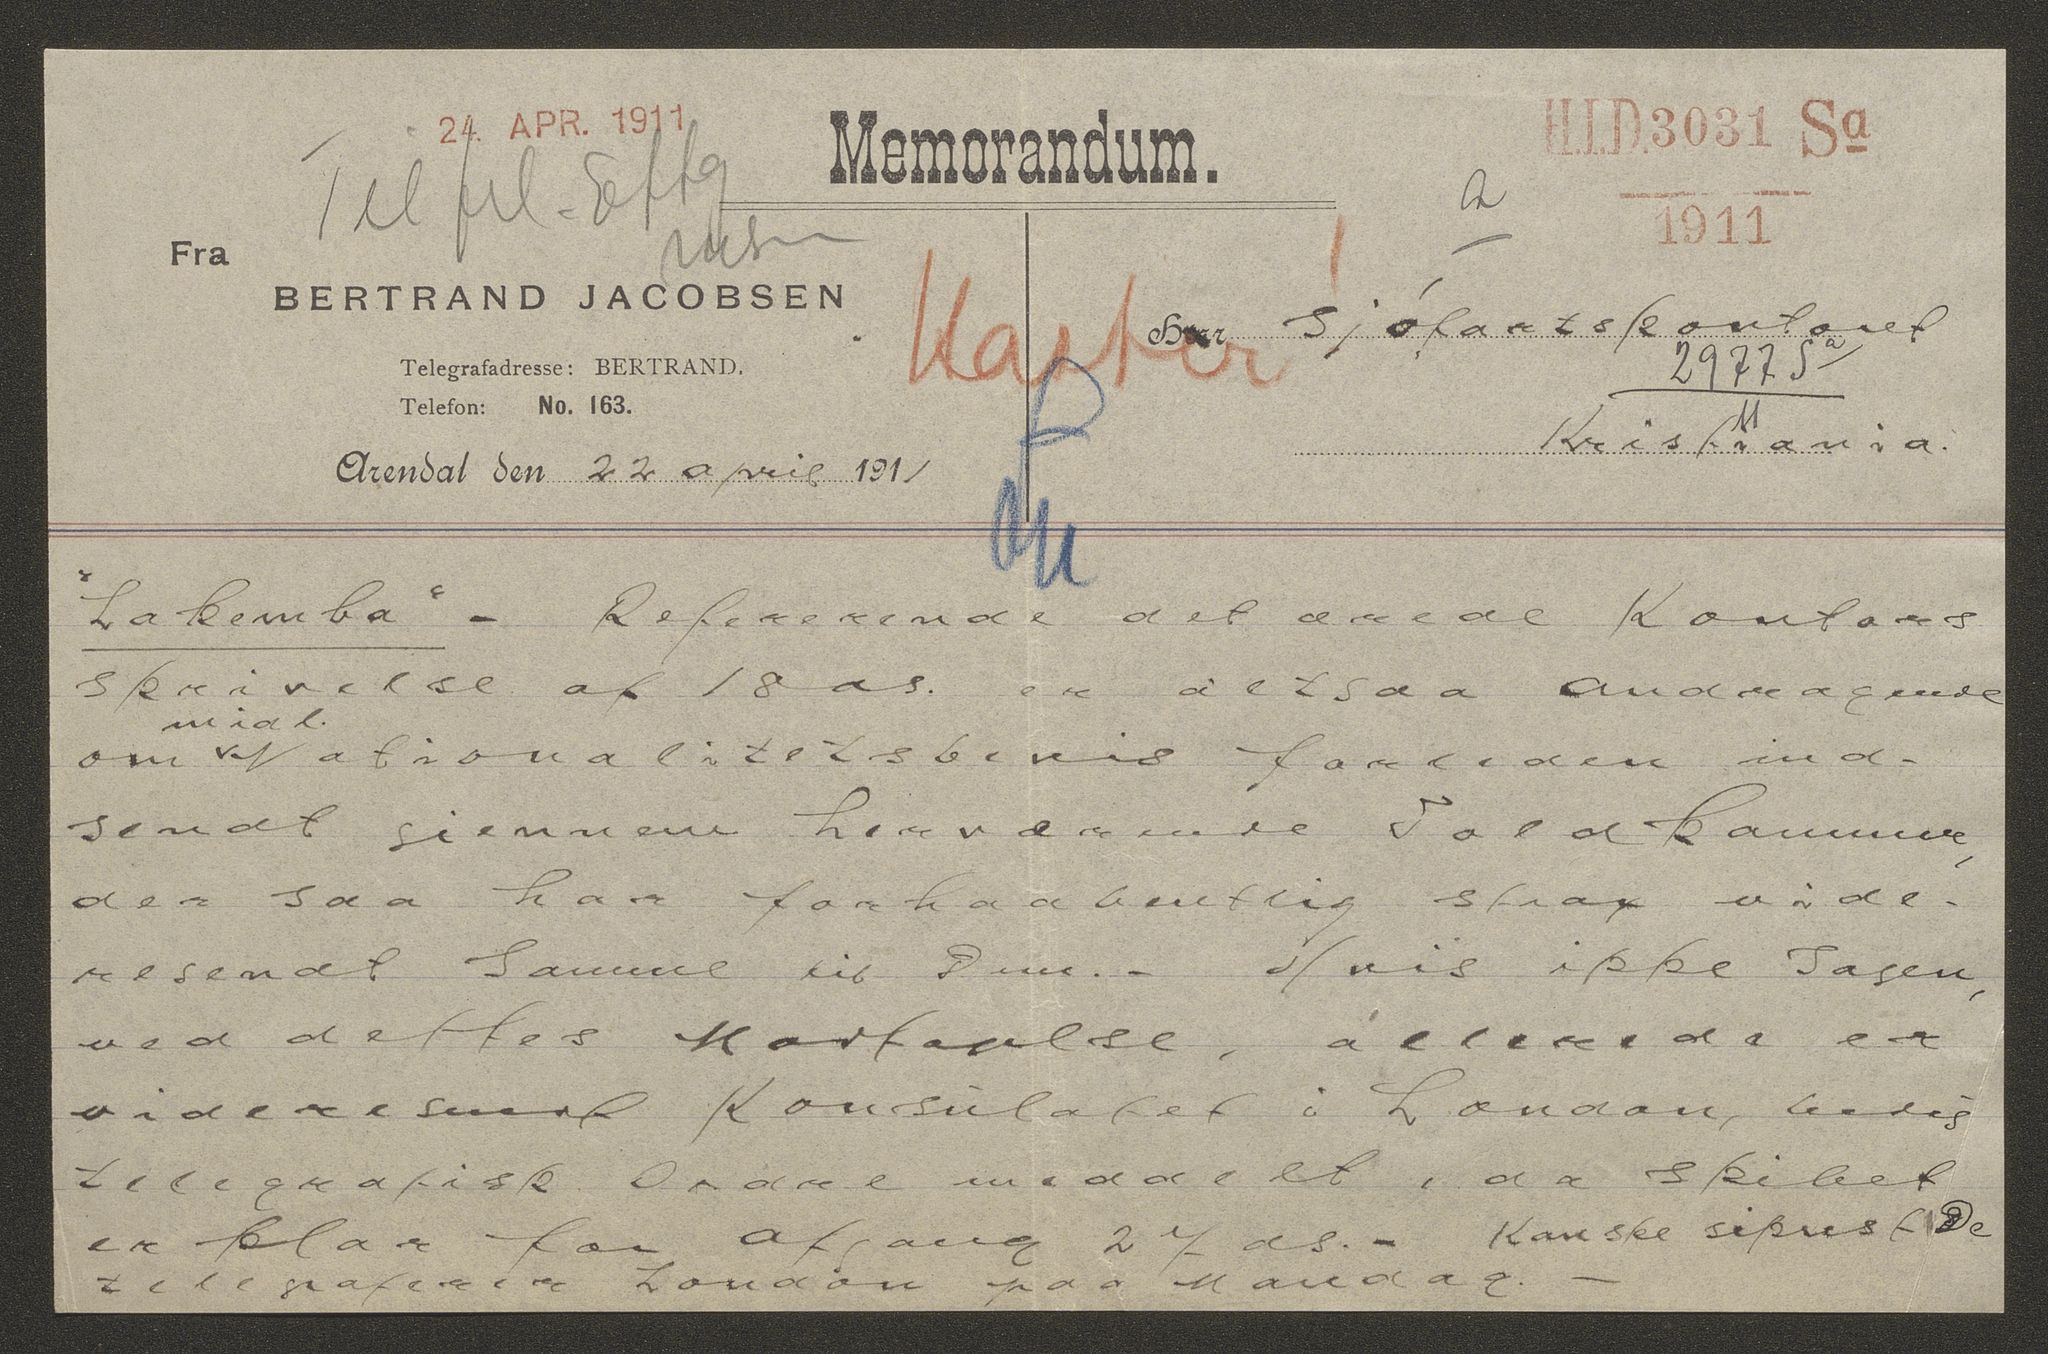 24. APR. 1911
Memorandum.
H.J.D. 3031 Sa
1911
Til
Fra
BERTRAND JACOBSEN
Haster!
Herr Sjófartskontoret
2977 Sa
Telegrafadresse: BERTRAND.
Telefon: No. 163.
Kristiania.
Arendal den 22 april 1911
"Lakemba" - Refererende det ærede Kontors
skrivelse af 18 ds. er altsaa andragende
midl.
om Nationalitetsbevis forleden ind-
sendt giennem herværende Toldkammer,
der saa har forhaabentlig strax vide-
resendt Samme til Dem. - Hvis ikke Sagen,
ved dettes Modtagelse, allerede er
videresendt Konsulatet i London, bedes
telegrafisk Ordre meddelt, da skibet
er klar for Afgang 27 ds. - Kanske sikrest De
telegraferer London paa Mandag. -